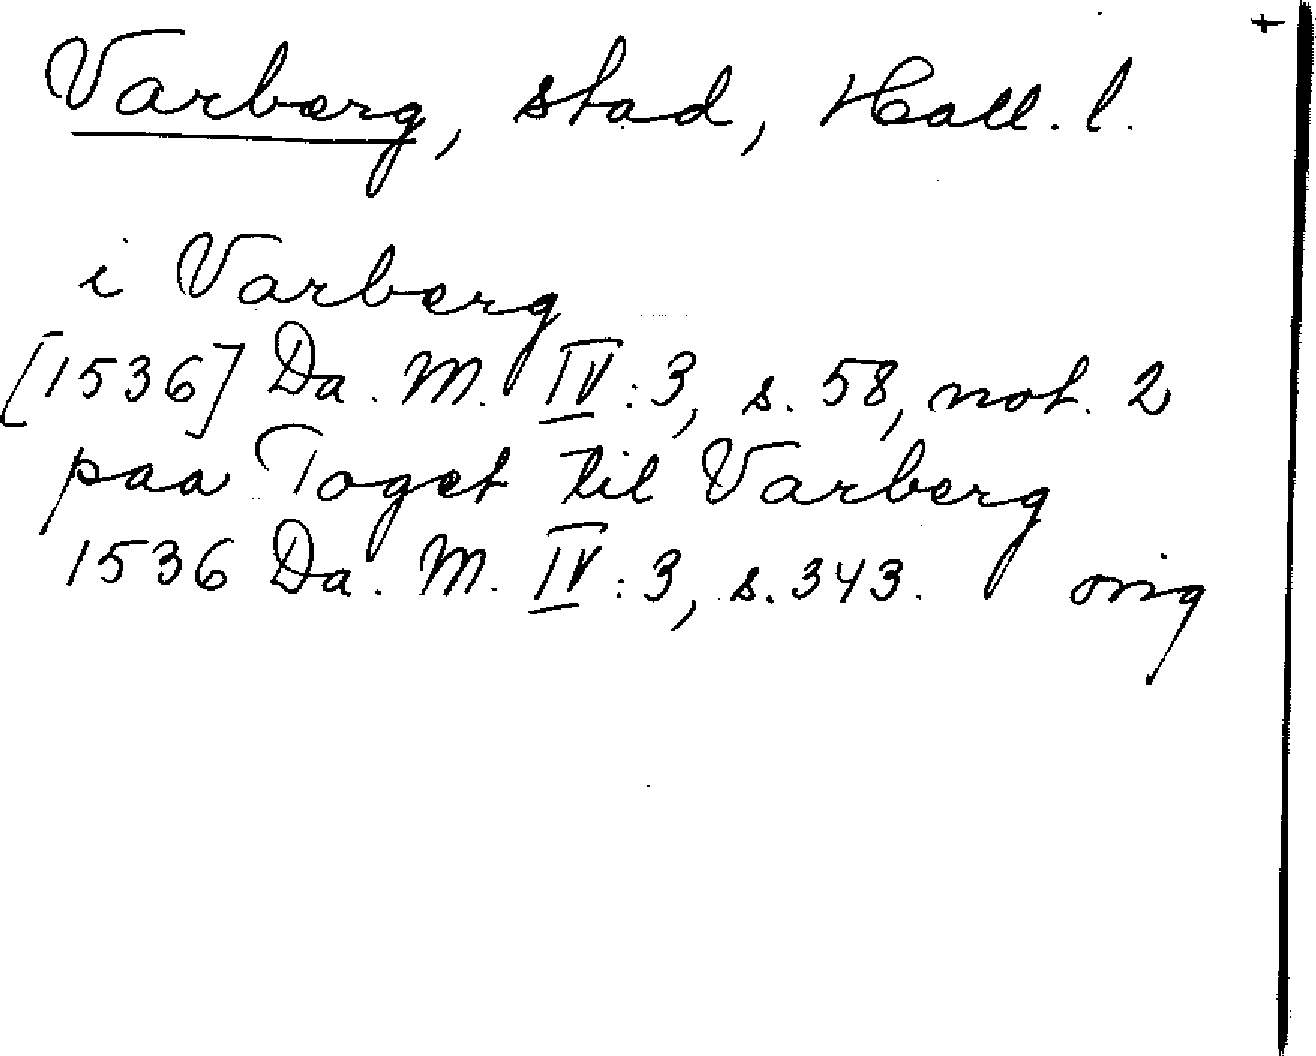 +
Varberg, stad, Hall. l.
i Varberg
[1536] Da. M. IV:3, s. 58, not. 2
paa Toget til Varberg
1536 Da. M. IV:3, s. 343. orig